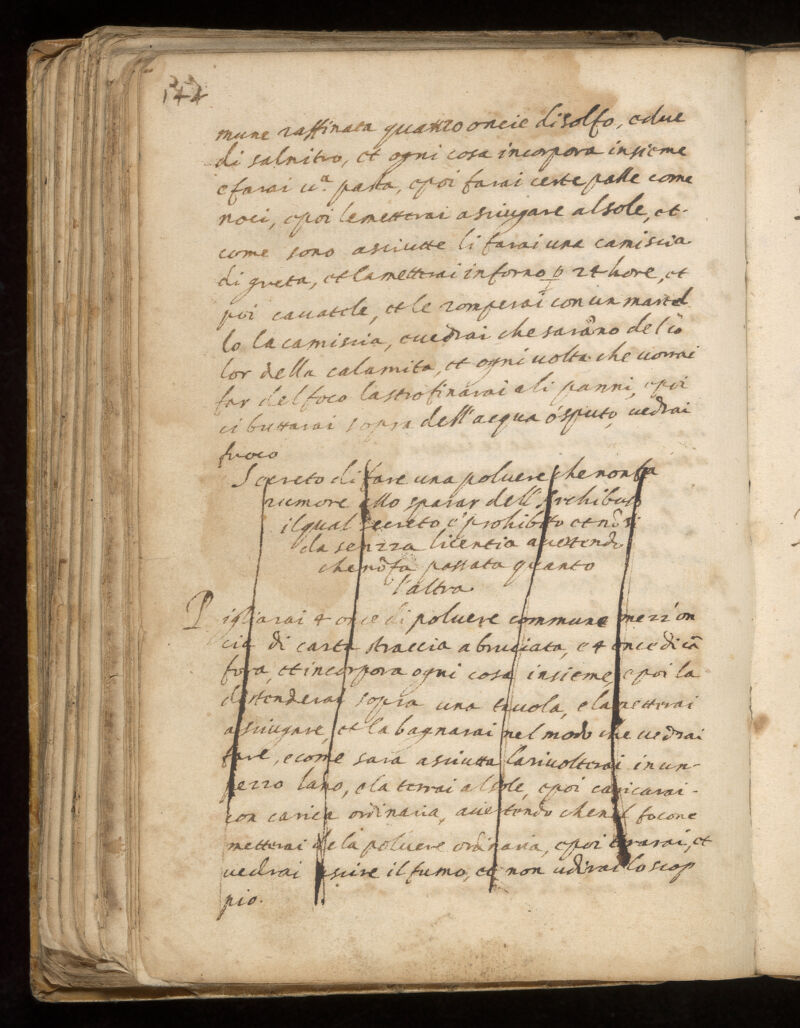 144
mune raffinata quattro oncie di solfo, e due
di salnitro, et ogni cosa incorpora insieme
e farai u.ª pasta, e poi farai certe palle come
noci, e poi le metterai a sciugare al sole, et
come sono asciutte li farai una camiscia
di greta, et la metterai in forno p 24 hore, et
poi cavatele, et le romperai con un martel
lo la camiscia, e uedrai che sarãno del co
lor della calamita, et ogni uolta che uorrai
far del foco la strofinarai a li panni, e poi
ci buttarai sopra dell'acqua ò sputo, uedrai
fuoco
Secreto di fare una poluere che non fa
rumore allo sparar dell'Archibuso
il qual secreto è prohibito et nõ si
da senza licentia auertendo
che nõ fa passata quanto
l'altra
Pigliarai 4 once di poluere commune mezz'on
cia di carta straccia abruciata, e 4 once di cã
fora, et incorpora ogni cosa insieme e poi la
destenderai sopra una tauola, e la metterai
a sciugare, et la bagnarai nel modo che uedrai
fare, e come sara asciutta la riuolterai in un
pezzo lano, e la terrai al sole, e poi caricarai
con carica ordinaria, auertendo che nel focone
metterai de la poluere ordinaria, e poi tirarai, et
uedrai uscire il fumo, et non udirai lo scop
pio.